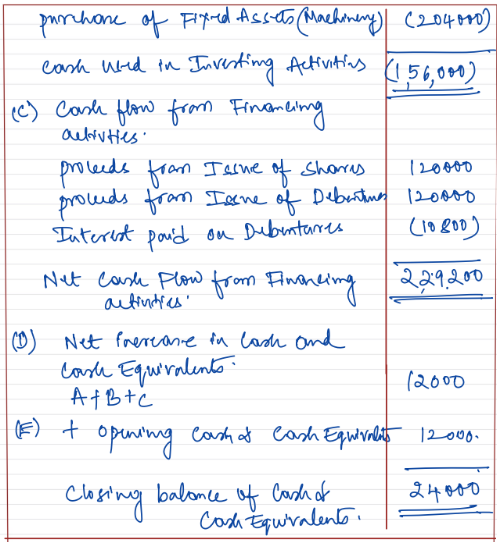 purchase of Fixed Assets (Machinery) (204000)
Cash Used in Investing Activities (1,56,000)
(C) Cash flow from Financing
activities.
proceeds from Issue of Shares 120000
proceeds from Issue of Debentures 120000
Interest paid on Debentures (10800)
Net Cash Flow from Financing 2,29,200
activities.
(D) Net Increase in Cash and
Cash Equivalents.
A+B+C 12000
(E) + Opening Cash & Cash Equivalents 12000.
Closing balance of Cash & 24000
Cash Equivalents.